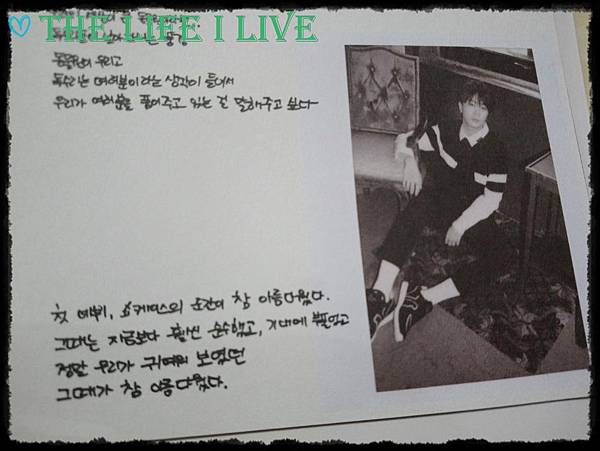 THE LIFE I LIVE
우리고
독수리는 여러분이라는 생각이 들어서
우리가 여러분을 풀어주고 있는 걸 말해주고 싶다
첫 데뷔, 쇼케이스의 순간이 참 아름다웠다.
그때는 지금보다 훨씬 순수했고, 기대에 부풀었고
정말 우리가 귀여워 보였던
그때가 참 아름다웠다.